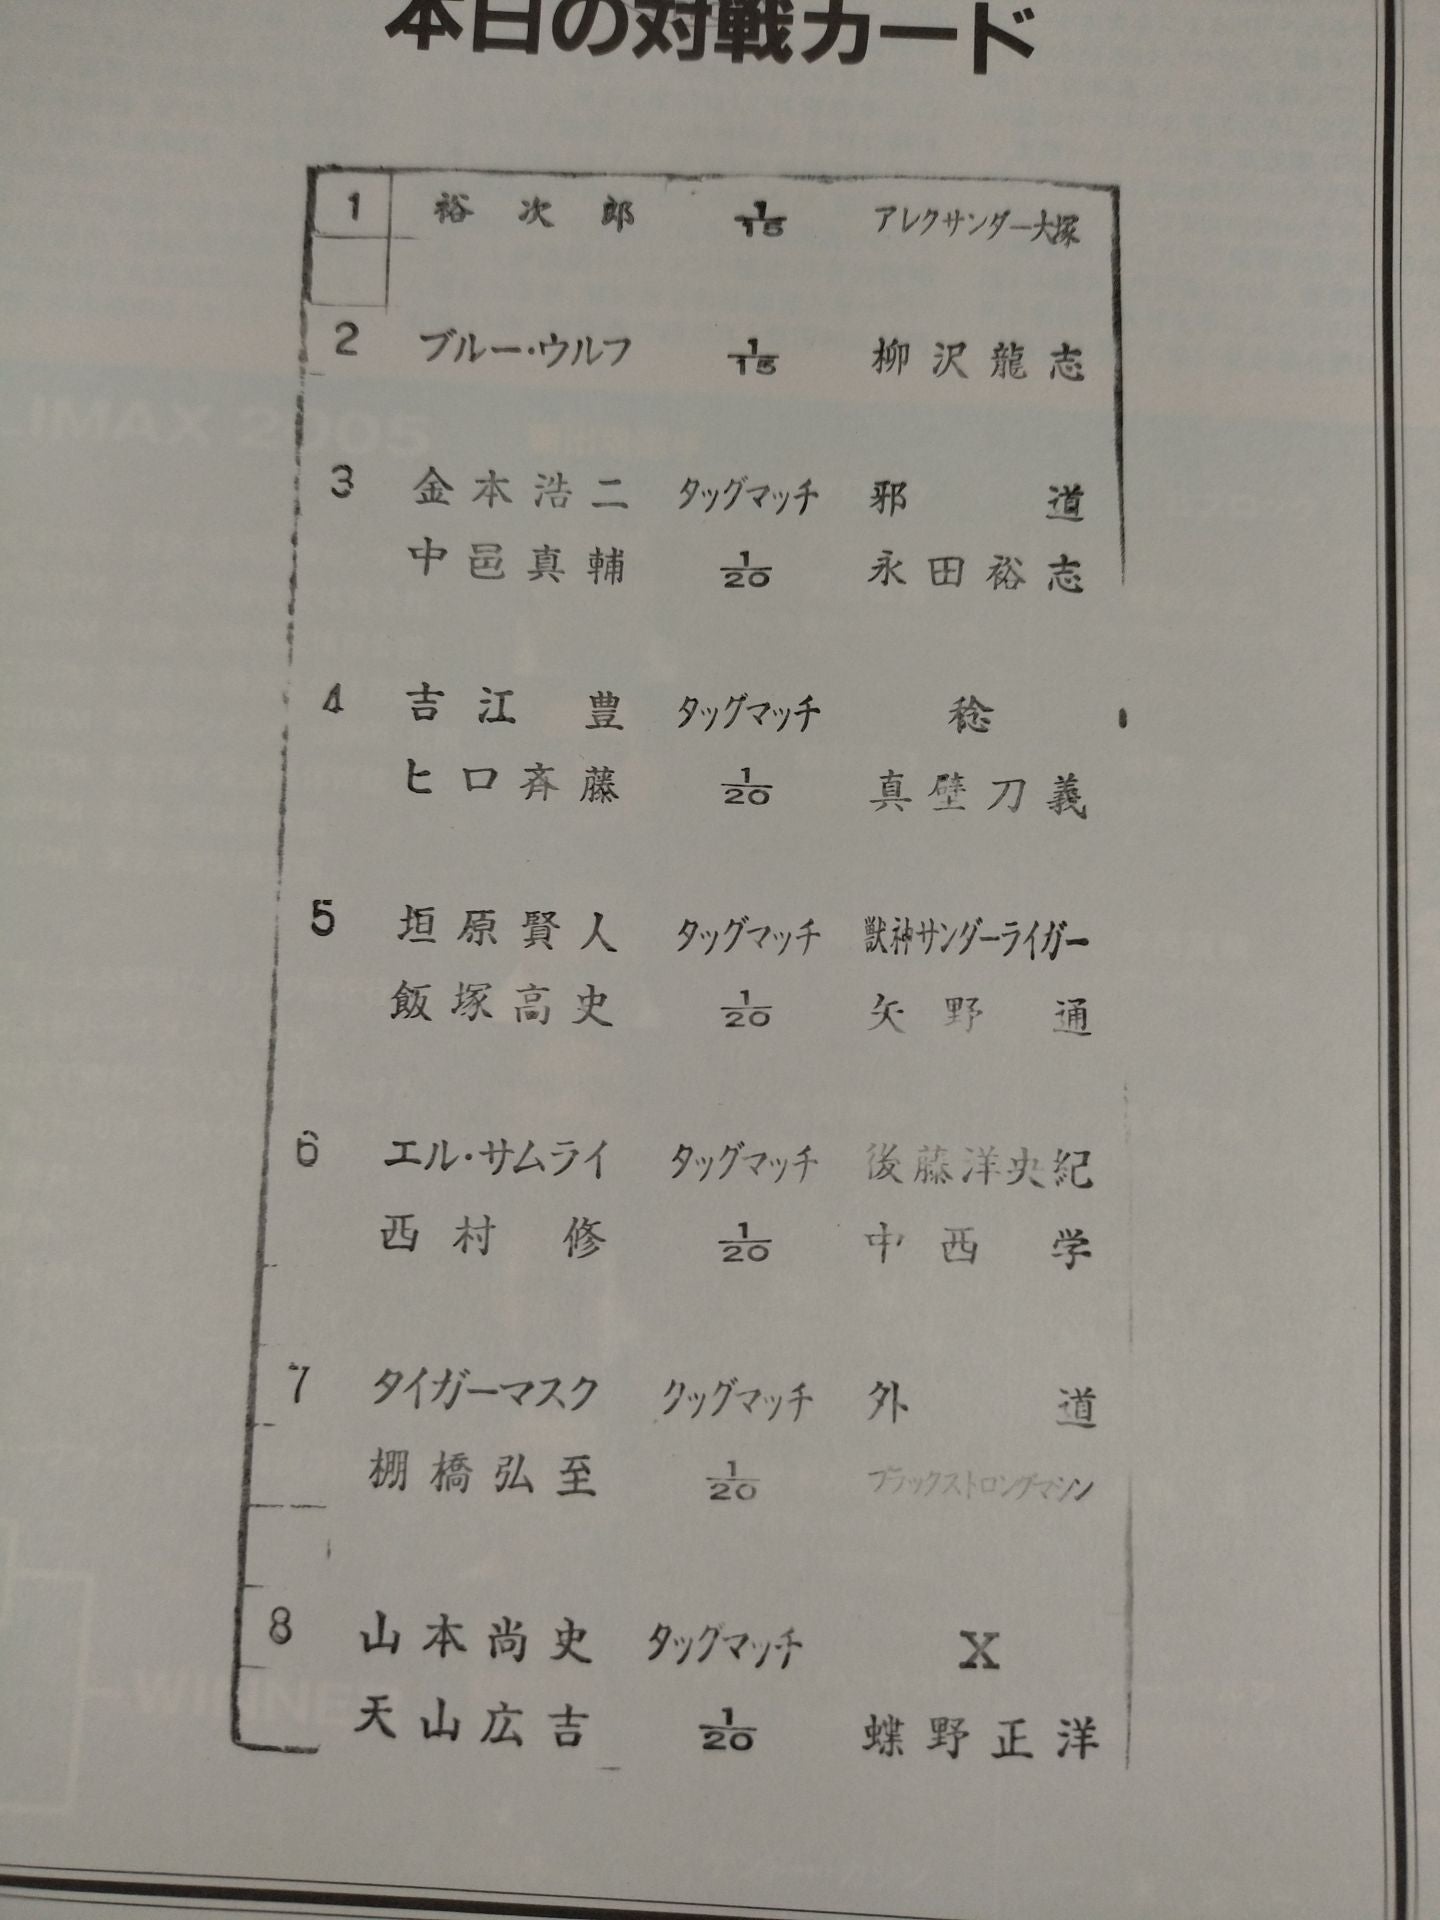 本日の対戦カード
1 裕次郎 1/15 アレクサンダー大塚
2 ブルー・ウルフ 1/15 柳沢龍志
3 金本浩二 タッグマッチ 邪道
中邑真輔 1/20 永田裕志
4 吉江豊 タッグマッチ 稔
ヒロ斉藤 1/20 真壁刀義
5 垣原賢人 タッグマッチ 獣神サンダーライガー
飯塚高史 1/20 矢野通
6 エル・サムライ タッグマッチ 後藤洋央紀
西村修 1/20 中西学
7 タイガーマスク タッグマッチ 外道
棚橋弘至 1/20 ブラックストロングマシン
8 山本尚史 タッグマッチ X
天山広吉 1/20 蝶野正洋
LIMAX 2005
WINNER